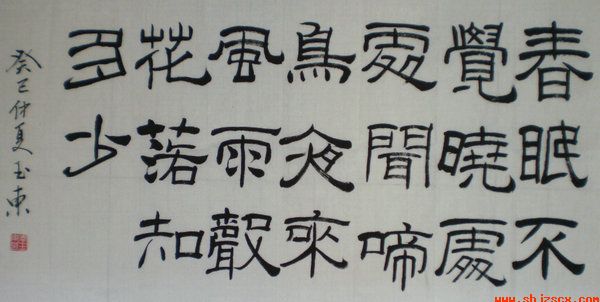 春眠不
覺曉處
處聞啼
鳥夜來
風雨聲
花落知
多少
癸巳仲夏玉東
www.shjzscx.com